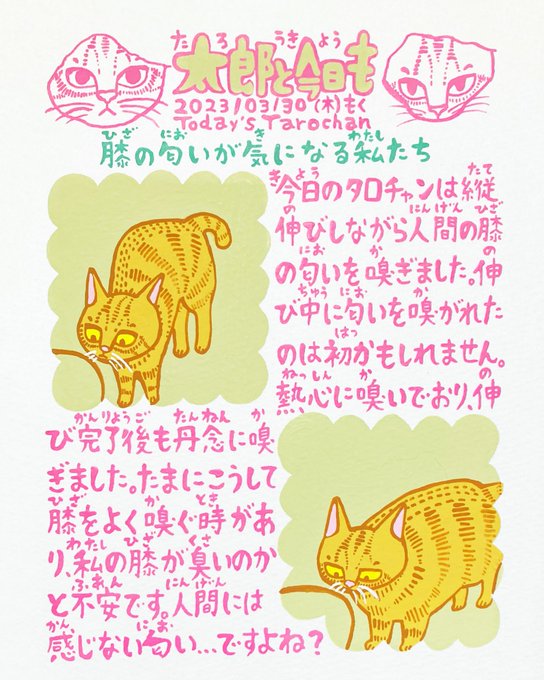 太郎と今日も
2023/03/30(木)もく
Today's Tarochan
膝の匂いが気になる私たち
今日のタロチャンは縦
伸びしながら人間の膝
の匂いを嗅ぎました。伸
び中に匂いを嗅がれた
のは初かもしれません。
熱心に嗅いでおり、伸
び完了後も丹念に嗅
ぎました。たまにこうして
膝をよく嗅ぐ時があ
り、私の膝が臭いのか
と不安です。人間には
感じない匂い...ですよね?